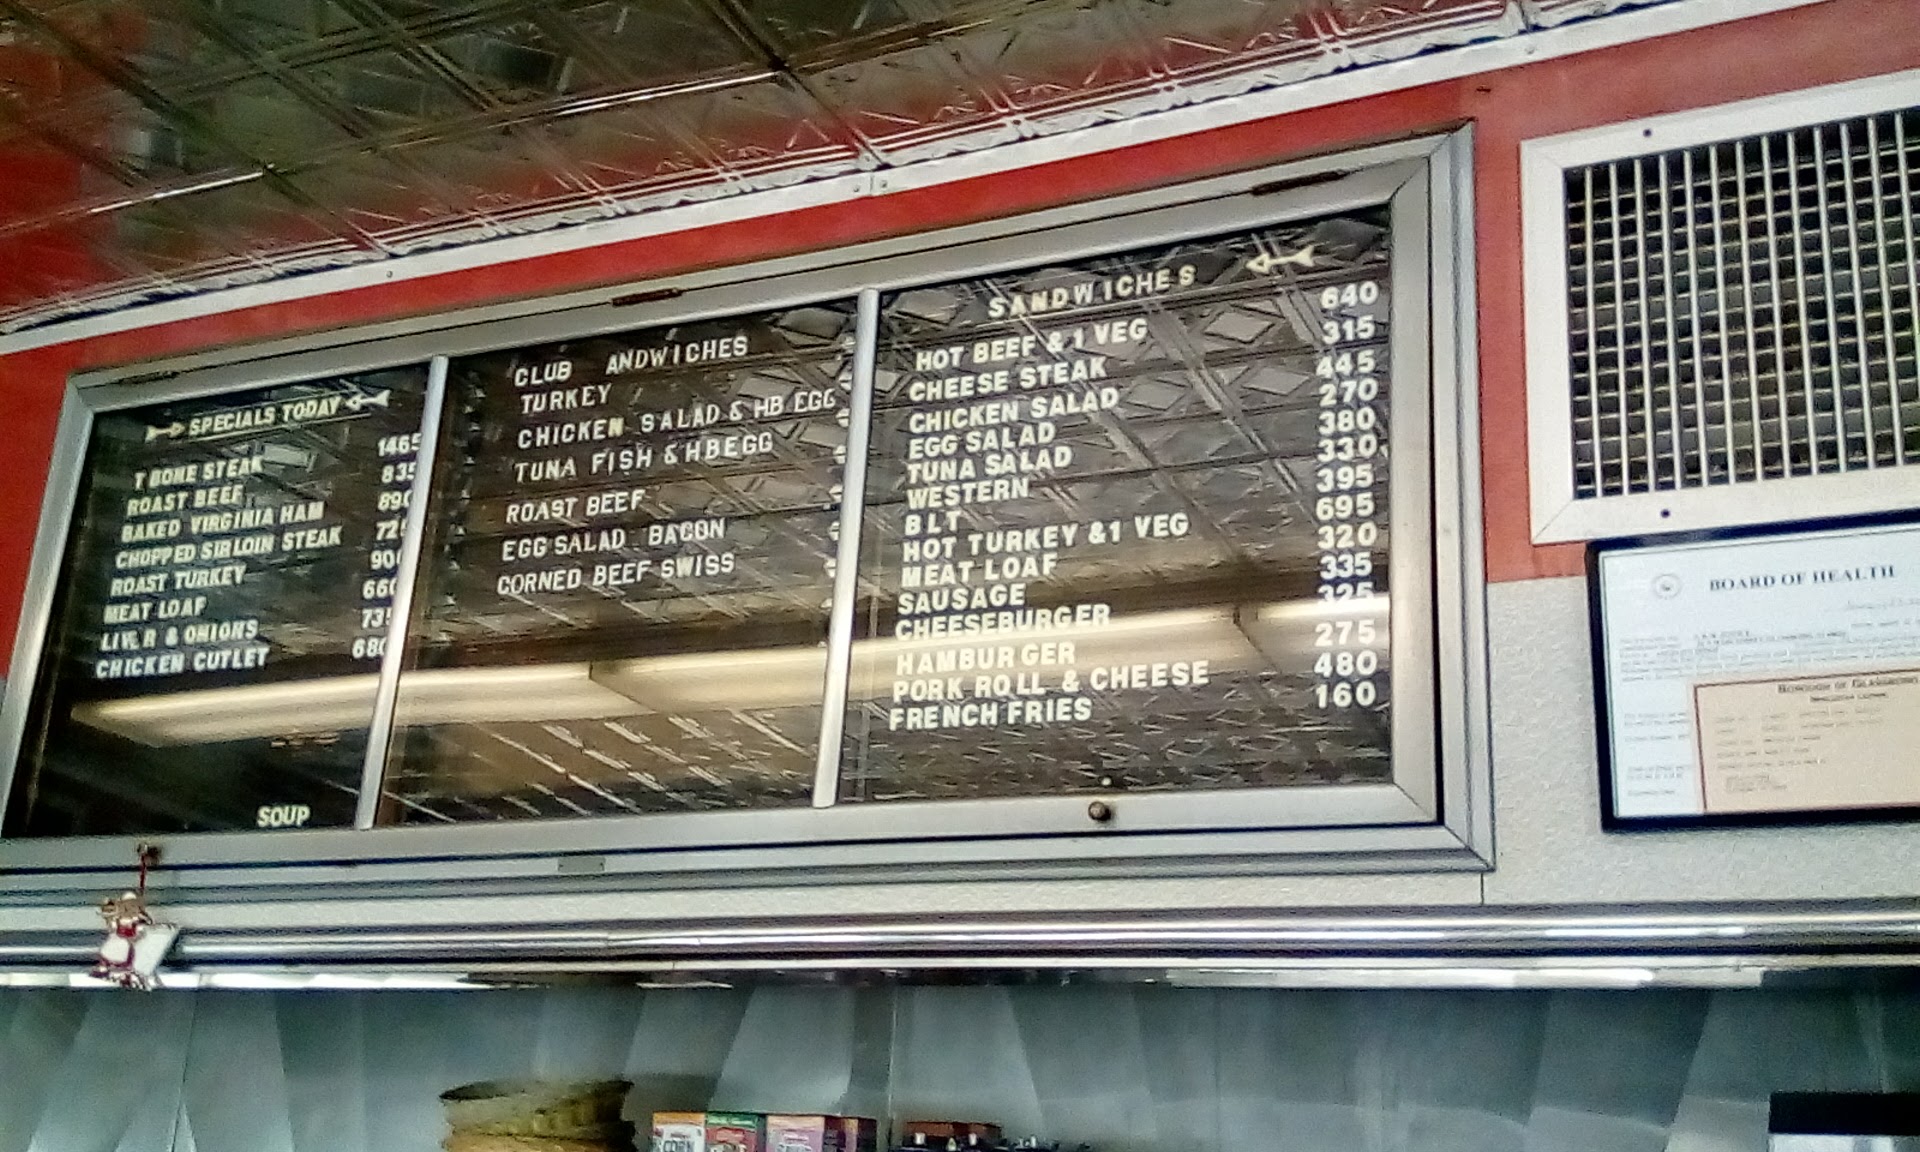 SPECIALS TODAY
T BONE STEAK 1465
ROAST BEEF 835
BAKED VIRGINIA HAM 890
CHOPPED SIRLOIN STEAK 725
ROAST TURKEY 900
MEAT LOAF 660
LIV R & ONIONS 735
CHICKEN CUTLET 680
SOUP
CLUB ANDWICHES
TURKEY
CHICKEN SALAD & HB EGG
TUNA FISH & HB EGG
ROAST BEEF
EGG SALAD BACON
CORNED BEEF SWISS
SANDWICHES
HOT BEEF & 1 VEG 640
CHEESE STEAK 315
CHICKEN SALAD 445
EGG SALAD 270
TUNA SALAD 380
WESTERN 330
BLT 395
HOT TURKEY & 1 VEG 695
MEAT LOAF 320
SAUSAGE 335
CHEESEBURGER 325
HAMBURGER 275
PORK ROLL & CHEESE 480
FRENCH FRIES 160
BOARD OF HEALTH
BOROUGH OF GLASSBORO
CORN